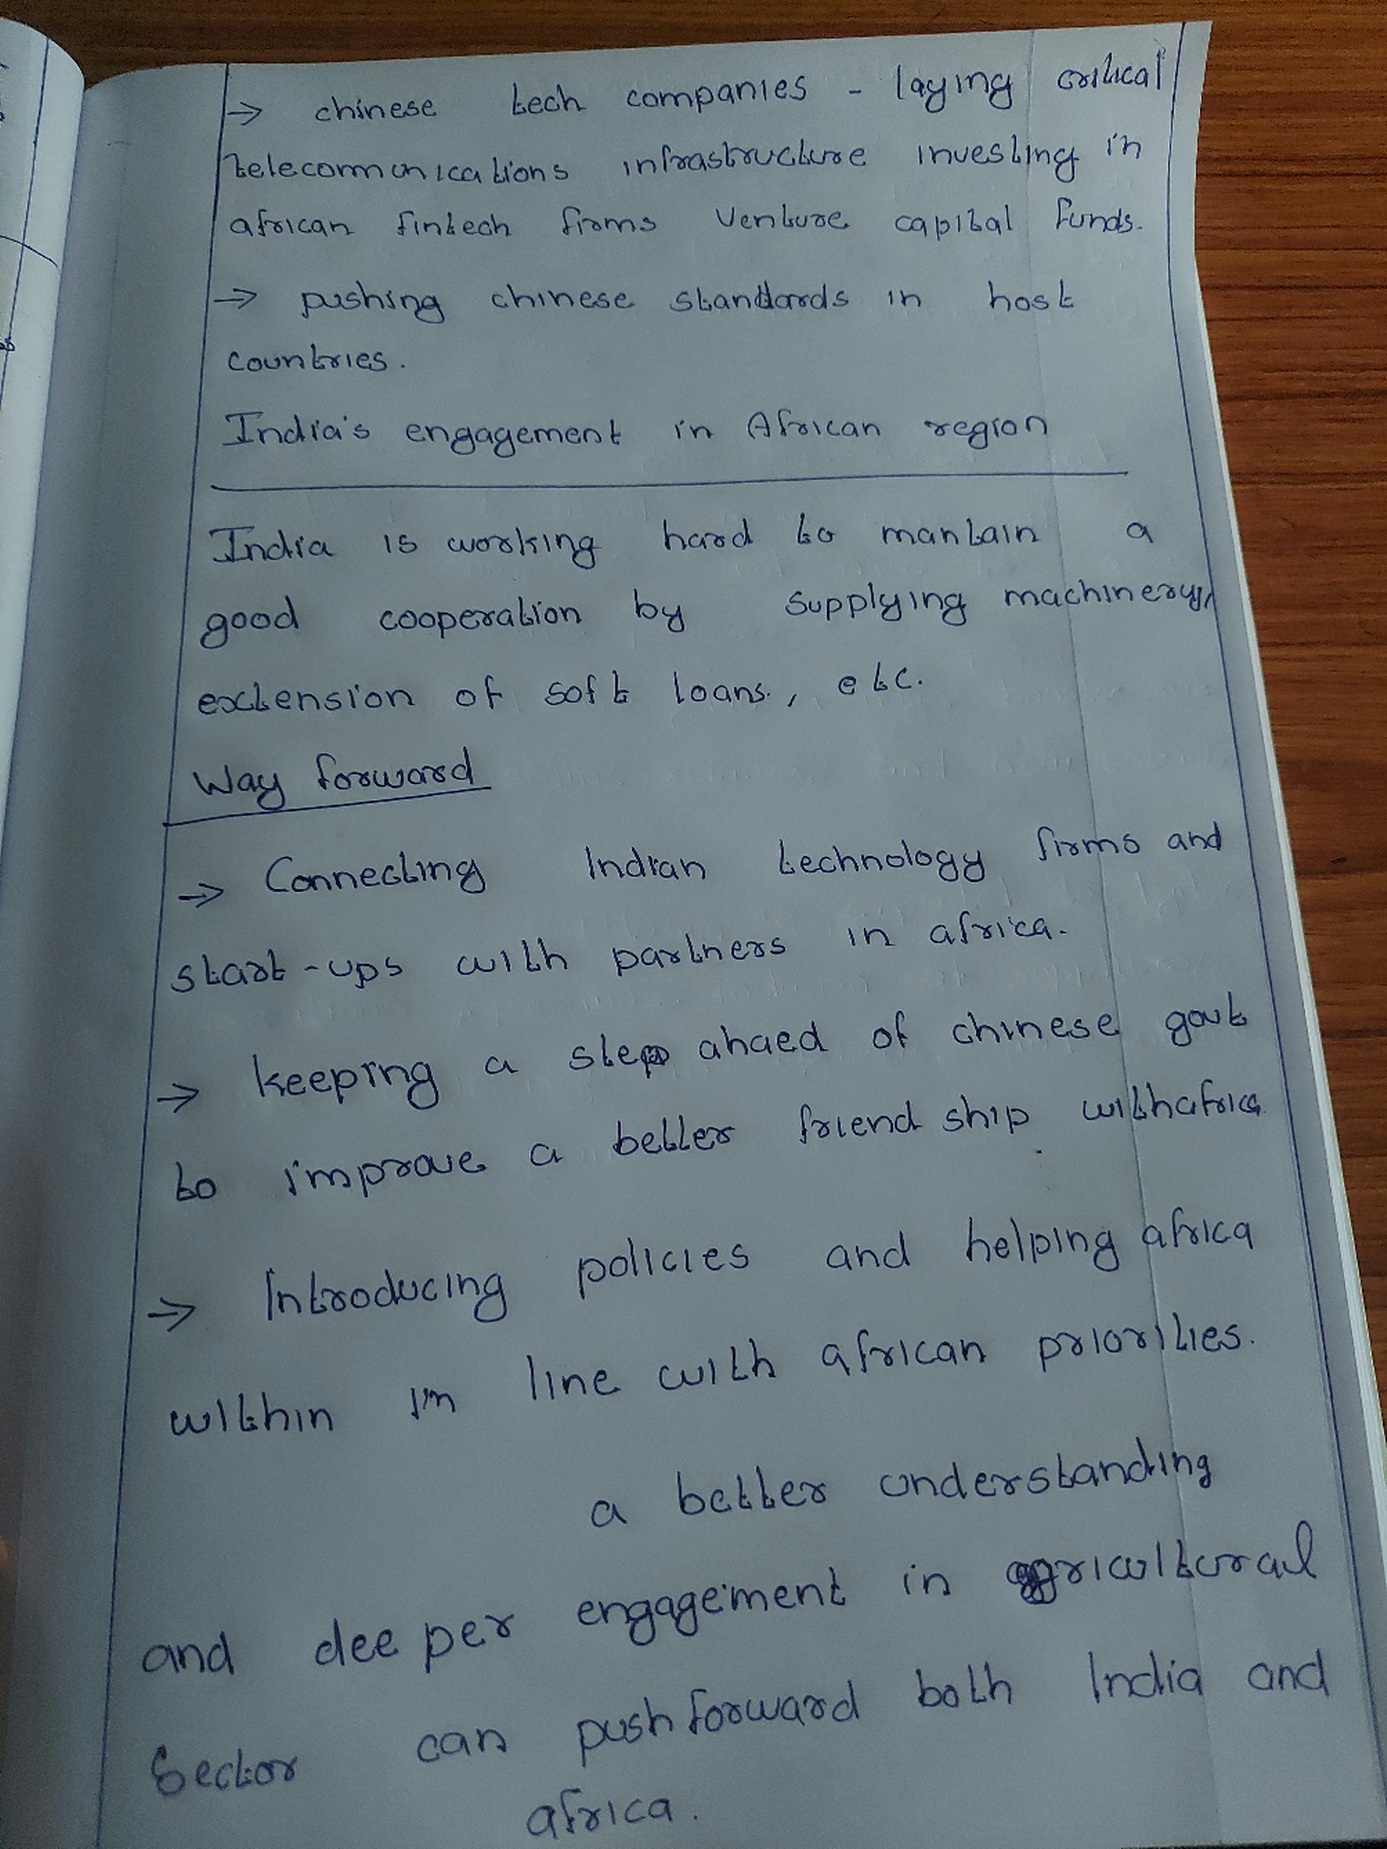 → chinese tech companies - laying critical
telecommunications infrastructure investing in
african fintech firms venture capital funds.
→ pushing chinese standards in host
countries.
India's engagement in African region
India is working hard to mantain a
good cooperation by supplying machinery,
extension of soft loans., etc.
Way forward
→ Connecting Indian technology firms and
start-ups with partners in africa.
→ keeping a step ahaed of chinese govt
to improve a better friend ship with africa
→ Introducing policies and helping africa
within in line with african priorities.
a better understanding
and deeper engagement in agricultural
Sector can push forward both India and
africa.